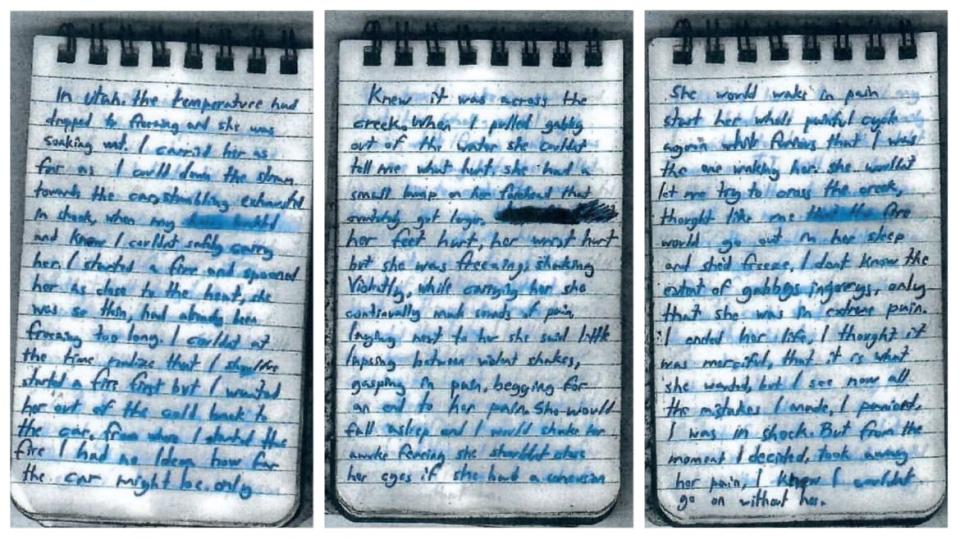 In Utah. the temperature had
dropped to freezing and she was
soaking wet. I carried her as
far as I could down the stream
towards the car, stumbling exhausted
in shock, when my
and knew I couldnt safely carry
her. I started a fire and spooned
her as close to the heat, she
was so thin, had already been
freezing too long. I couldnt at
the time realize that I should've
started a fire first but I wanted
her out of the cold back to
the car. from where I started the
fire I had no Idea how far
the car might be. only
Knew it was across the
creek. When I pulled gabby
out of the water she couldnt
tell me what hurt. she had a
small bump on her forehead that
eventually got larger.
her feet hurt, her wrist hurt
but she was freezing, shaking
Violently, while carrying her she
continually made sounds of pain,
laying next to her she said little
lapsing between violent shakes,
gasping in pain, begging for
an end to her pain. She would
fall asleep and I would shake her
awake fearing she shouldnt close
her eyes if she had a concussion
She would wake in pain
start her whole painful cycle
again while furious that I was
the one waking her. she wouldnt
let me try to cross the creek,
thought like me the fire
would go out in her sleep
and she'd freeze. I dont know the
extent of gabbys injurys, only
that she was in extreme pain.
I ended her life, I thought it
was merciful, that it is what
she wanted, but I see now all
the mistakes I made. I panicked,
I was in shock. But from the
moment I decided, took away
her pain, I knew I wouldnt
go on without her.